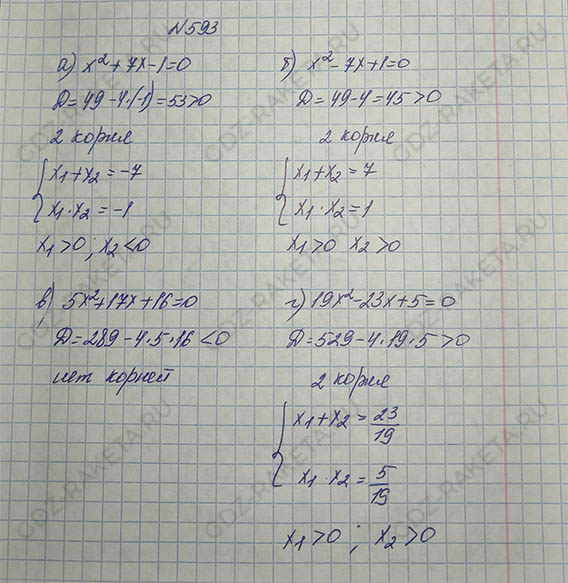 №593
а) x²+7x-1=0
D=49-4·(-1)=53>0
2 корня
x₁+x₂=-7
x₁·x₂=-1
x₁>0; x₂<0
б) x²-7x+1=0
D=49-4=45>0
2 корня
x₁+x₂=7
x₁·x₂=1
x₁>0 x₂>0
в) 5x²+17x+16=0
D=289-4·5·16<0
нет корней
г) 19x²-23x+5=0
D=529-4·19·5>0
2 корня
x₁+x₂=23/19
x₁·x₂=5/19
x₁>0; x₂>0
GDZ-RAKETA.RU